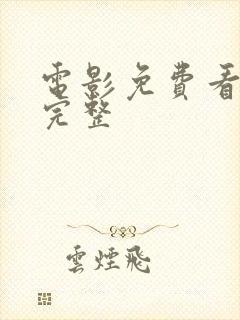 電影免費看
完整
雲煙飛